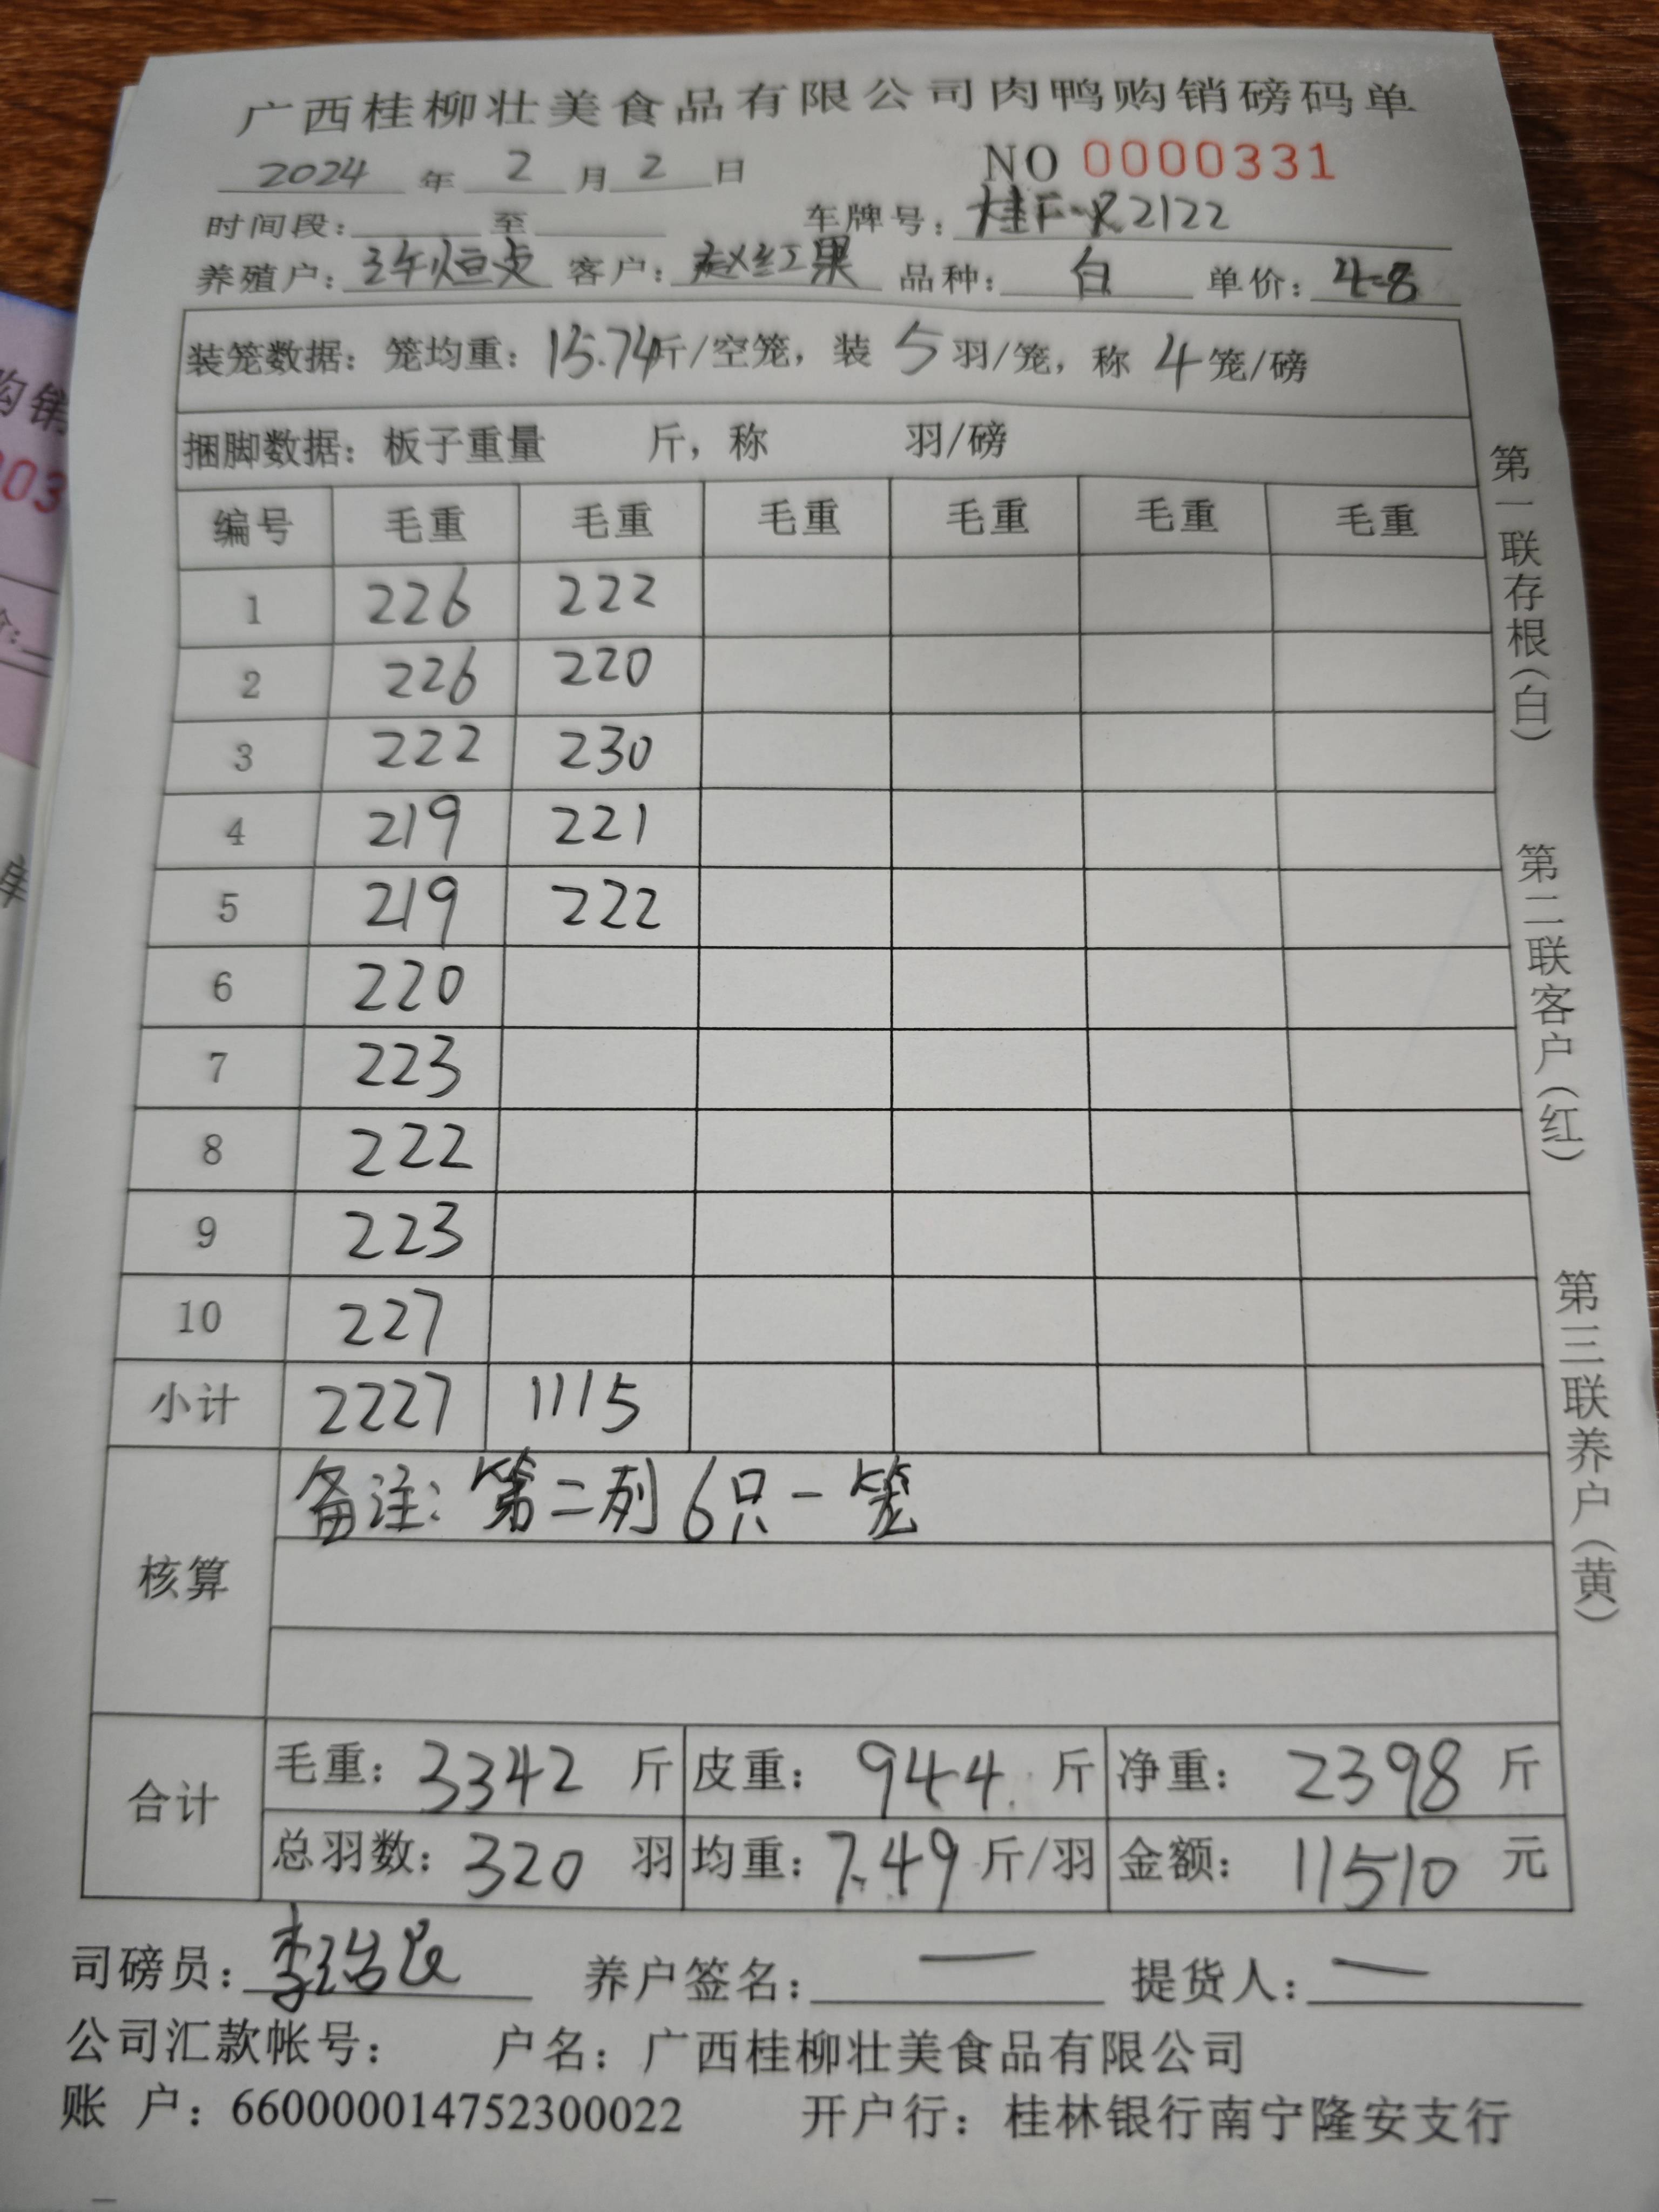 广西桂柳壮美食品有限公司肉鸭购销磅码单
2024 年 2 月 2 日 NO 0000331
时间段： 至 车牌号：桂F·R2122
养殖户： 客户：赵红果 品种：白 单价：4.8
装笼数据：笼均重：15.74斤/空笼，装 5 羽/笼，称 4 笼/磅
捆脚数据：板子重量 斤，称 羽/磅
编号 毛重 毛重 毛重 毛重 毛重 毛重
1 226 222
2 226 220
3 222 230
4 219 221
5 219 222
6 220
7 223
8 222
9 223
10 227
小计 2227 1115
核算 备注：第二列6只一笼
合计 毛重：3342 斤 皮重：944 斤 净重：2398 斤
总羽数：320 羽 均重：7.49 斤/羽 金额：11510 元
司磅员：李 养户签名：— 提货人：—
公司汇款帐号： 户名：广西桂柳壮美食品有限公司
账 户：660000014752300022 开户行：桂林银行南宁隆安支行
第一联存根（白） 第二联客户（红） 第三联养户（黄）
购销
003